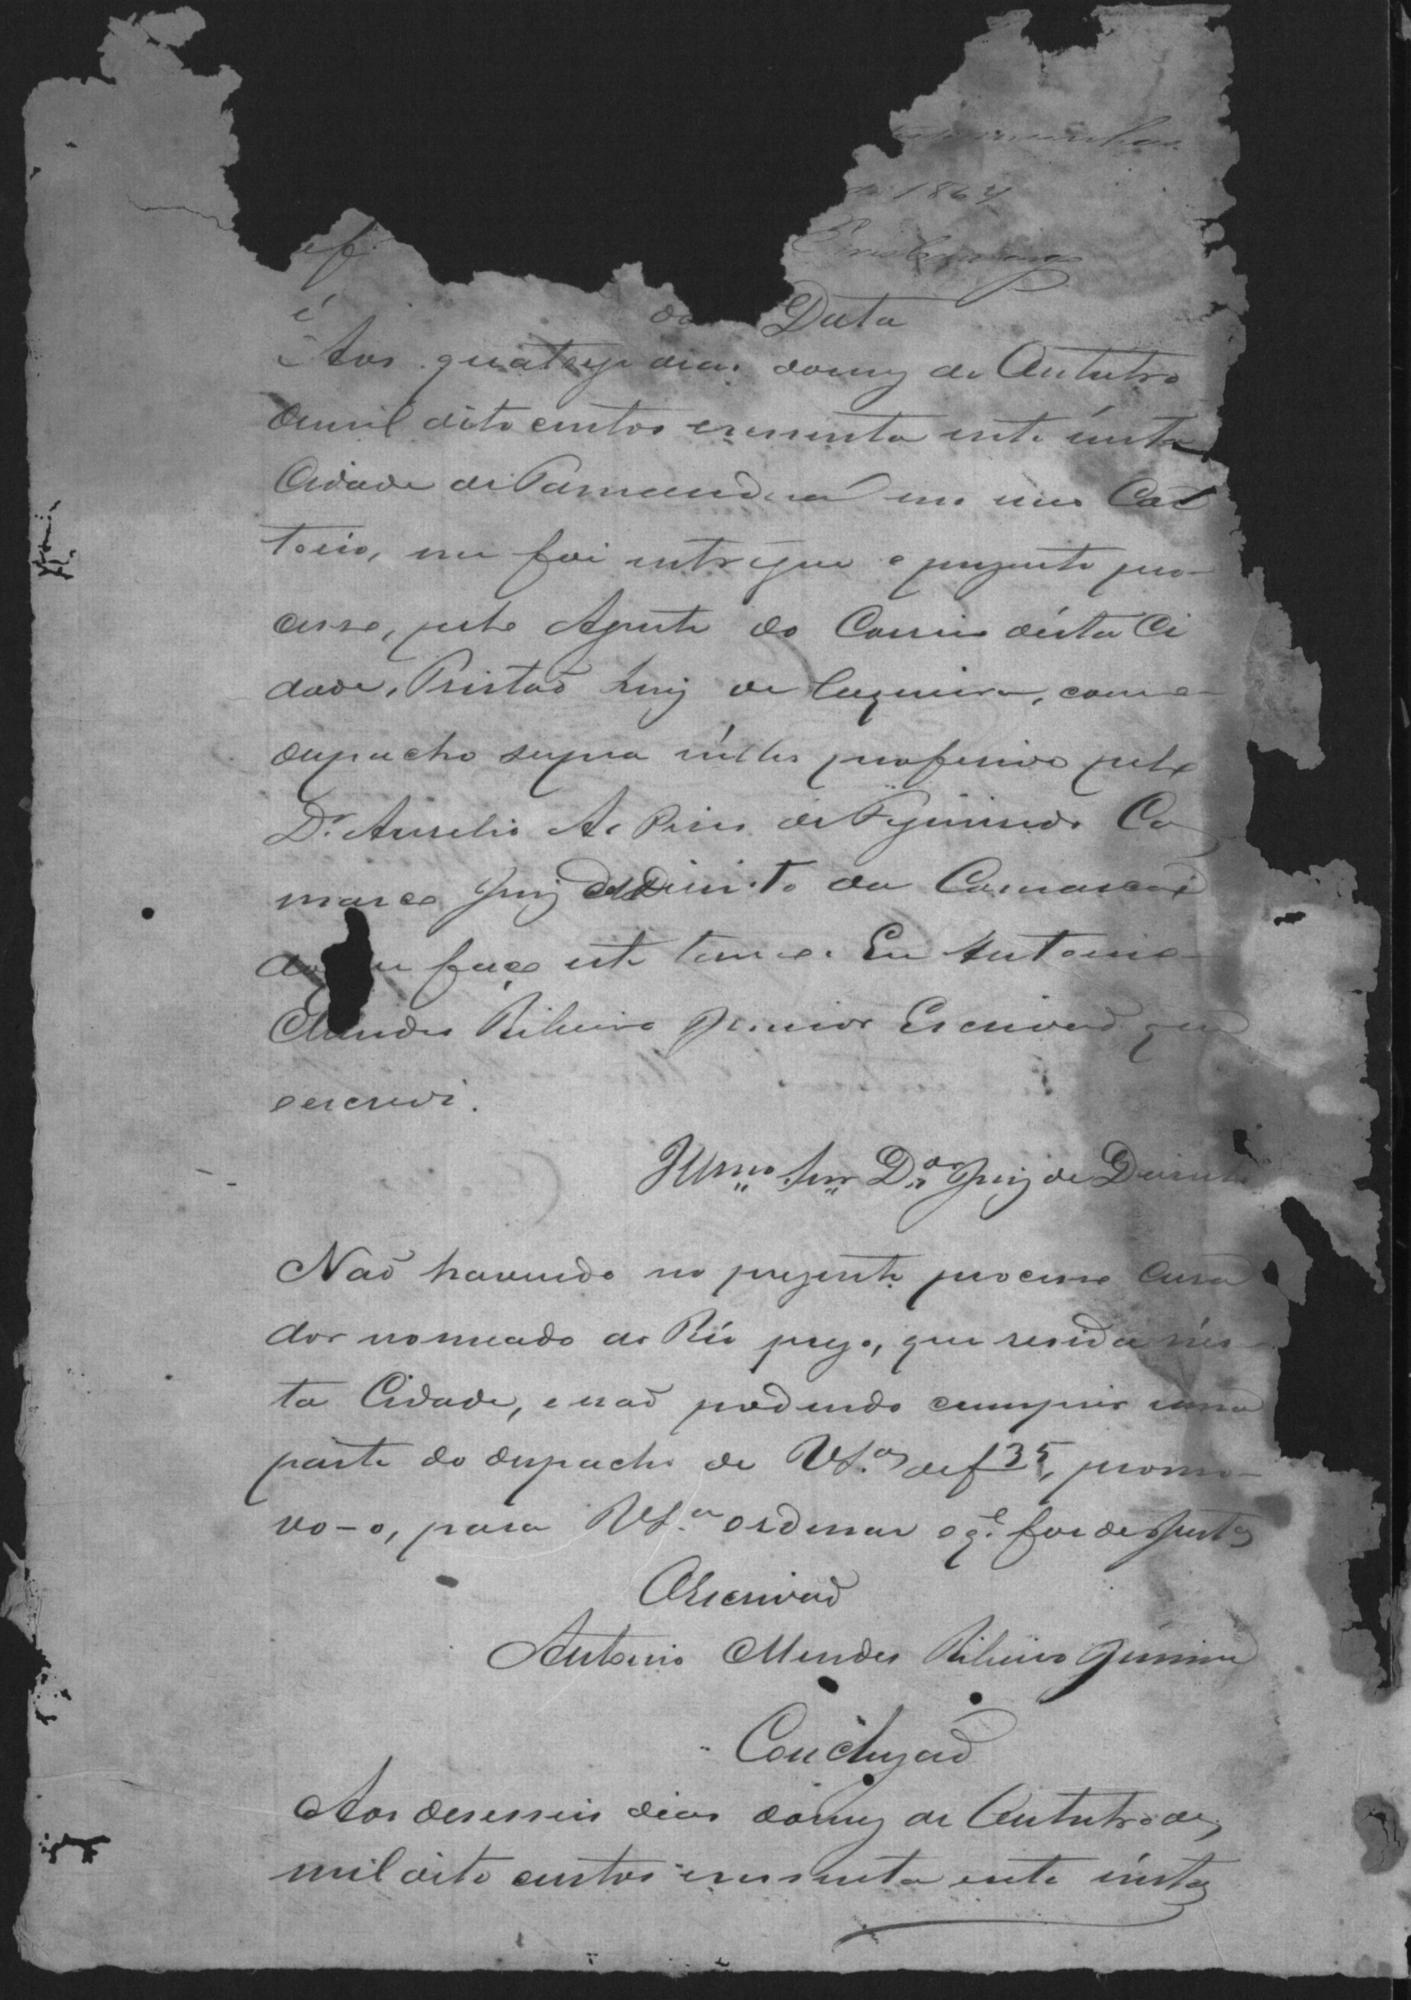 de 1864
Data
Aos quatorze dias domez de Outubro
demil oito centos esessenta esete n'esta
Cidade de Tamanduá em meu Car
torio, me foi entregue o prezente pro-
cesso, pelo Agente do Correio désta Ci
dade, Tristaõ Luiz de Cerqueira, com o
despacho supra n'elles proferido pelo
Dr. Aurelio A. Pires de Figueiredo Ca
margo Juiz de Direito da Comarca é
do que faço este termo. Eu Antonio
Mendes Ribeiro Junior Escrivaõ que
oescrevi.
Illmo. Snr. Dor. Juiz de Direito
Naõ havendo no prezente processo Cura
dor nomeado ao Réo prezo, que resida n'es-
ta Cidade, e naõ podendo cumprir uma
parte do despacho de V.S.a de f 35, promo-
vo-o, para V.S.a ordenar o q.e for de Justa
OEscrivaõ
Antonio Mendes Ribeiro Junior
Concluzaõ
Aos deseseis dias domez de Outubro de
mil oito centos esessenta esete n'esta